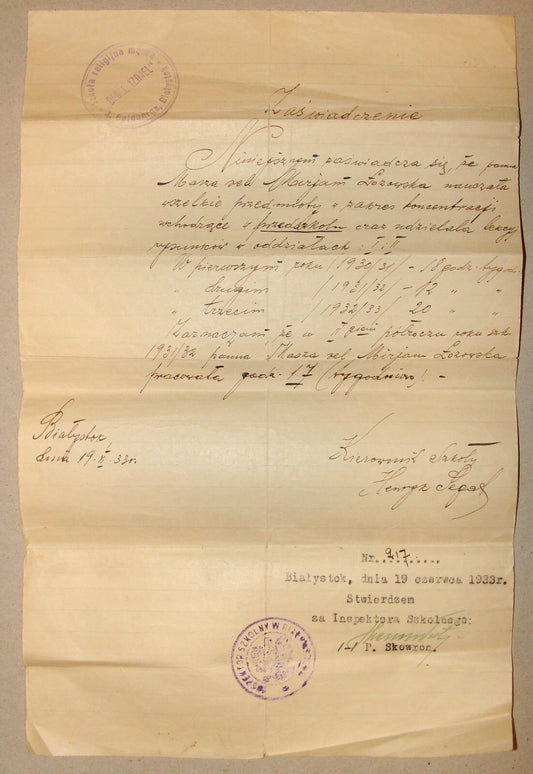 Szkoła religijna męska
Zaświadczenie
Niniejszym zaświadcza się, że panna
Masza vel Mirjam Łozowska nauczała
wszelkie przedmioty w zakres koncentracji
wchodzące w przedszkolu oraz udzielała lekcyj
rysunków w oddziałach: I i II
W pierwszym roku /1930/31/ – 18 godz. tygod.
" drugim /1931/32/ – 12 " "
" trzecim /1932/33/ 20 " "
Zaznaczam, że w II giem półroczu roku szk.
1931/32 panna Masza vel Mirjam Łozowska
pracowała godz. 17 (tygodniowo). –
Białystok,
dnia 19. 33 r.
Kierownik Szkoły
Henryk Segal
Nr. 217.....
Białystok, dnia 19 czerwca 1933r.
Stwierdzam
za Inspektora Szkolnego:
/-/ P. Skowron.
INSPEKTOR SZKOLNY W BIAŁYMSTOKU